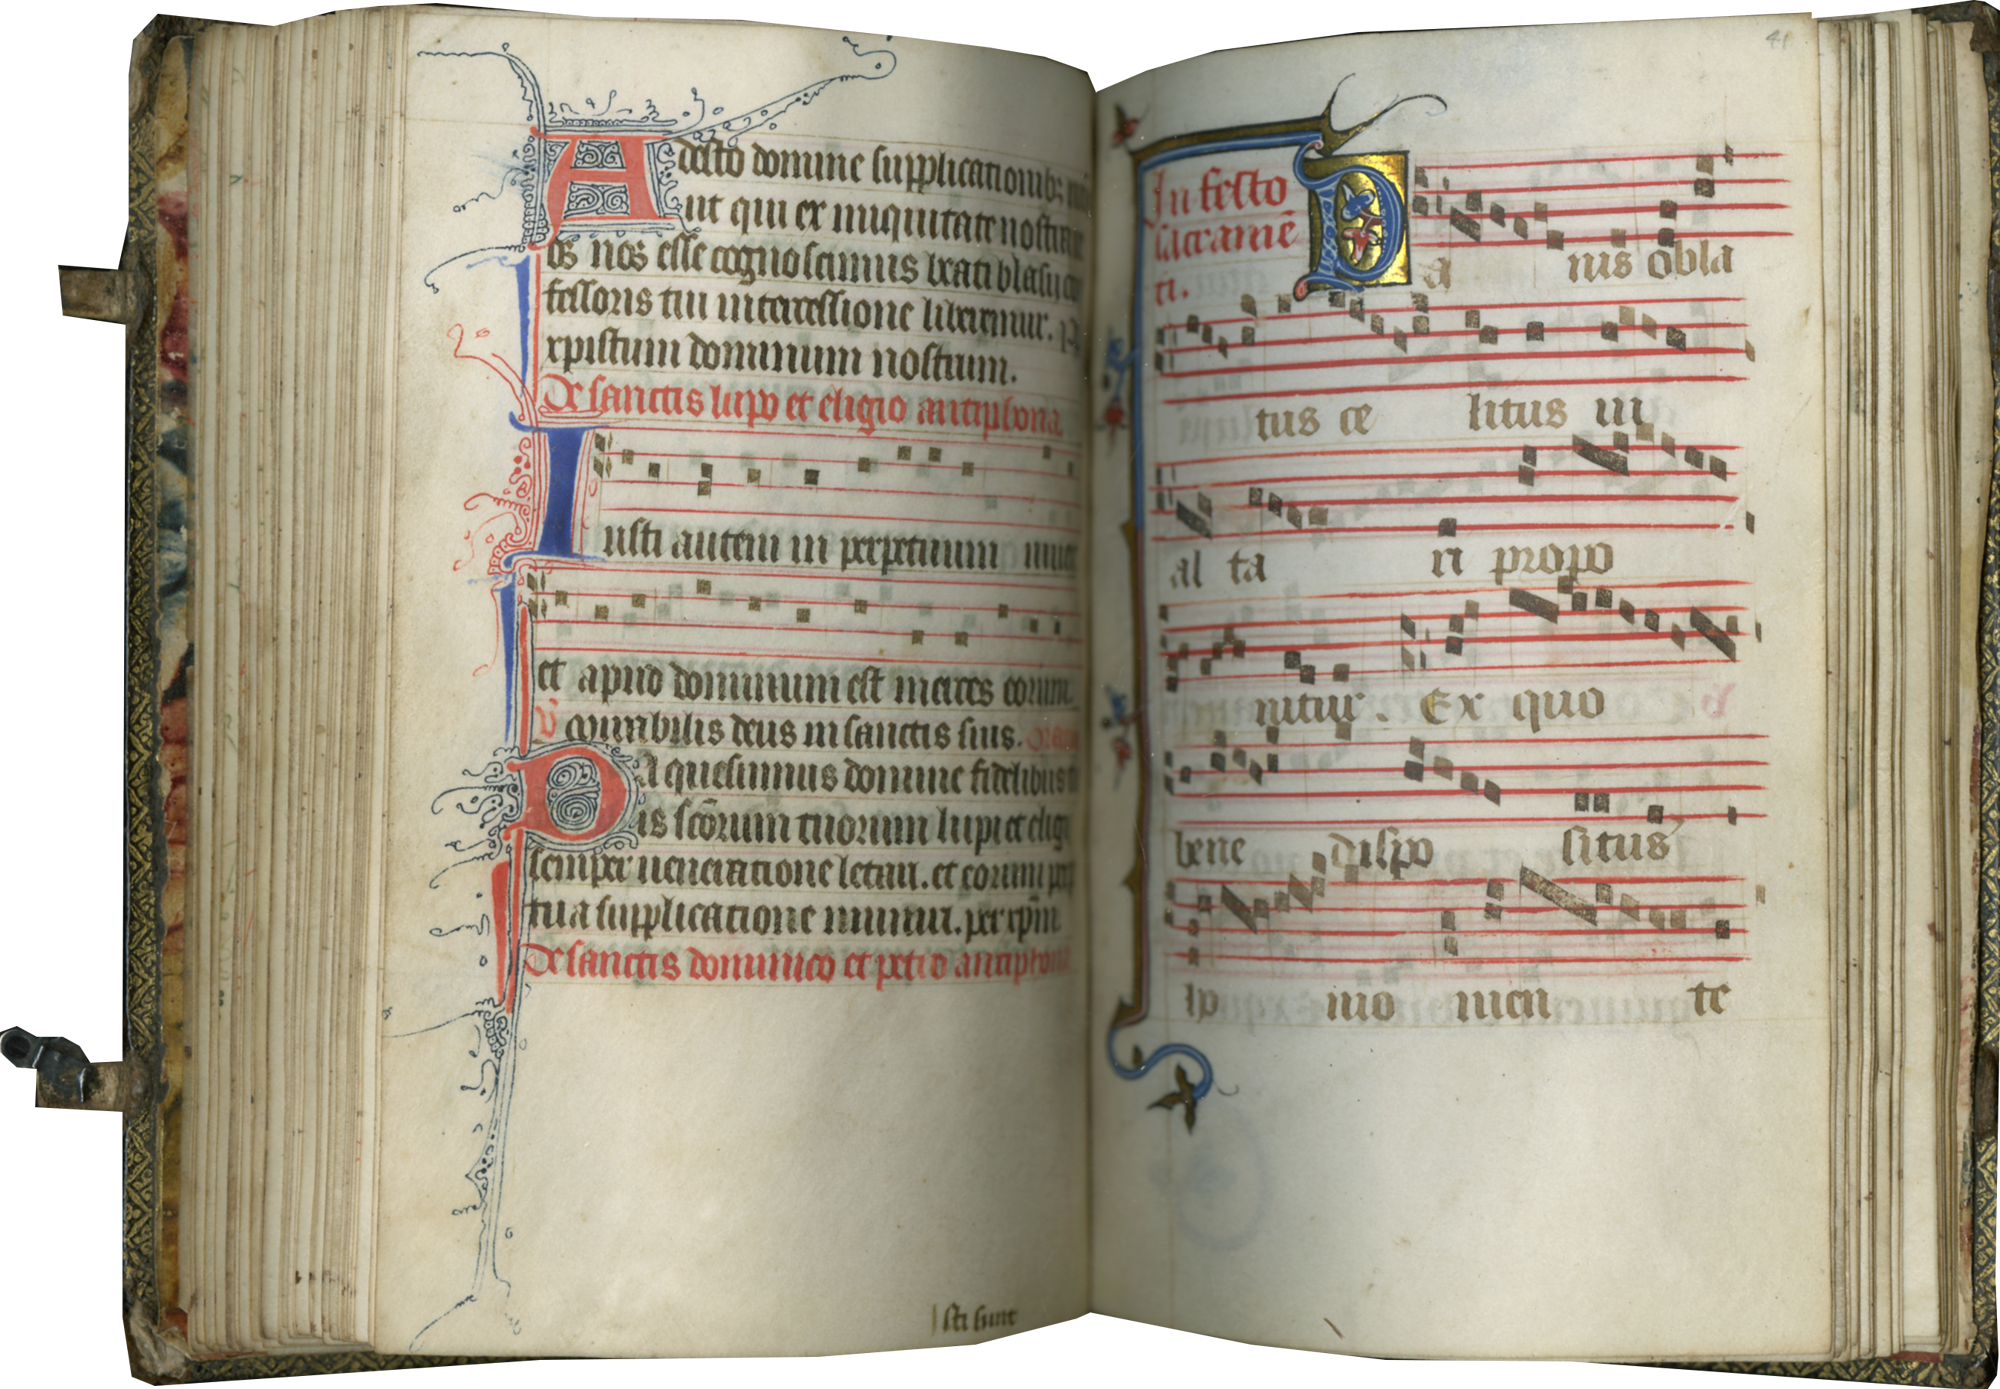 Adesto domine supplicationibꝫ
ut qui ex iniquitate nostra
os nos esse cognoscimus beati blasij
fessoris tui intercessione liberemur. P
xpistum dominum nostrum.
De sanctis lupo et eligio antiphona
Iusti autem in perpetuum
et apud dominum est merces eorum
℣ Mirabilis deus in sanctis suis.
Da quesumus domine fidelibus
is scōrum tuorum lupi et eligij
semper ueneratione letari. et eorum
tua supplicatione muniri. per xpm̄
De sanctis dominico et petro antiphona
sti sunt
41
In festo
sacramē
ti.
Panis obla
tus ce litus in
al ta ri propo
nitur. Ex quo
bene dispo situs
ip mo men te